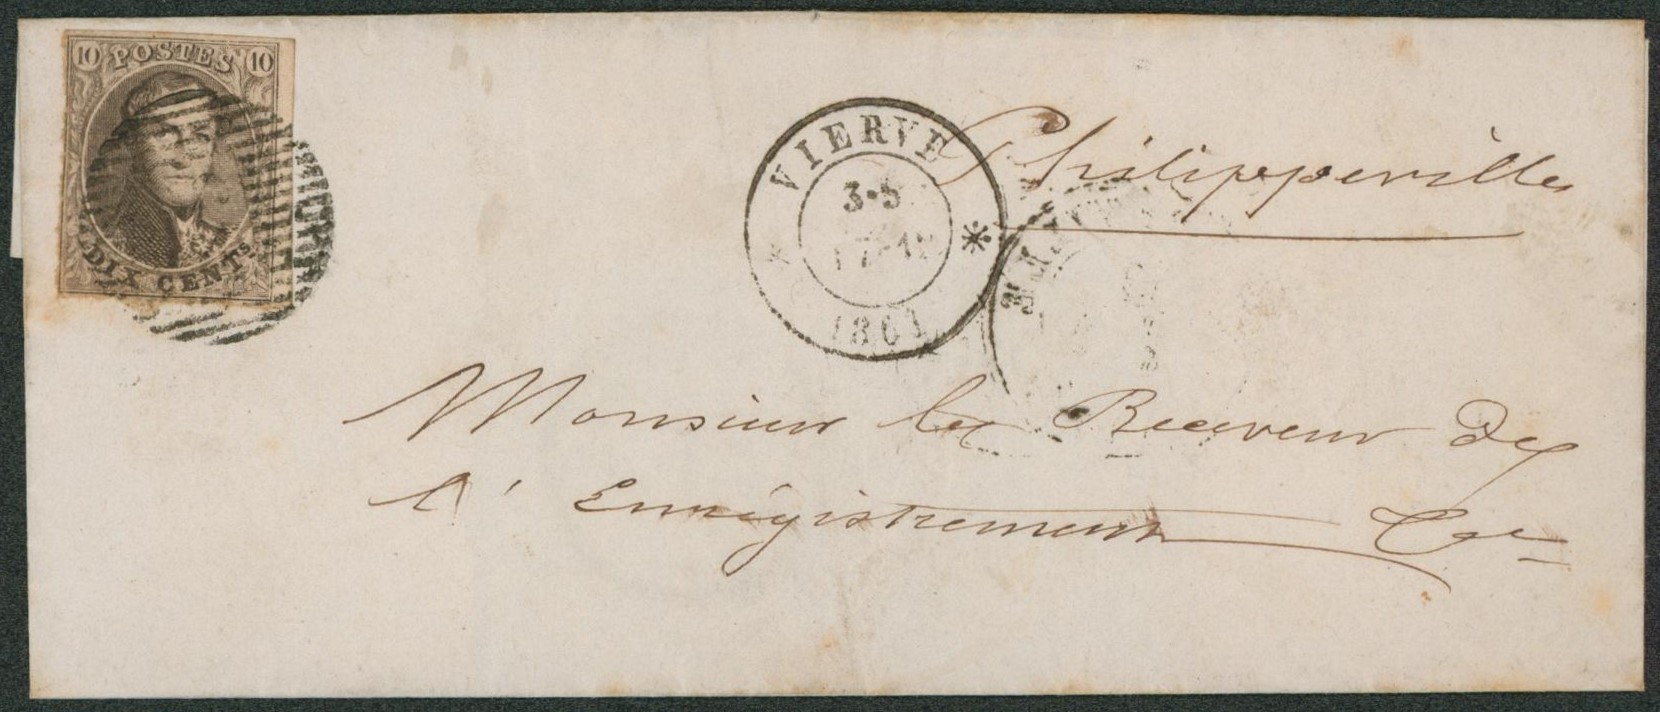 10 POSTES 10
DIX CENTS
VIERVE
3-5
1861
Philippeville
Monsieur le Receveur de
l'Enregistrement